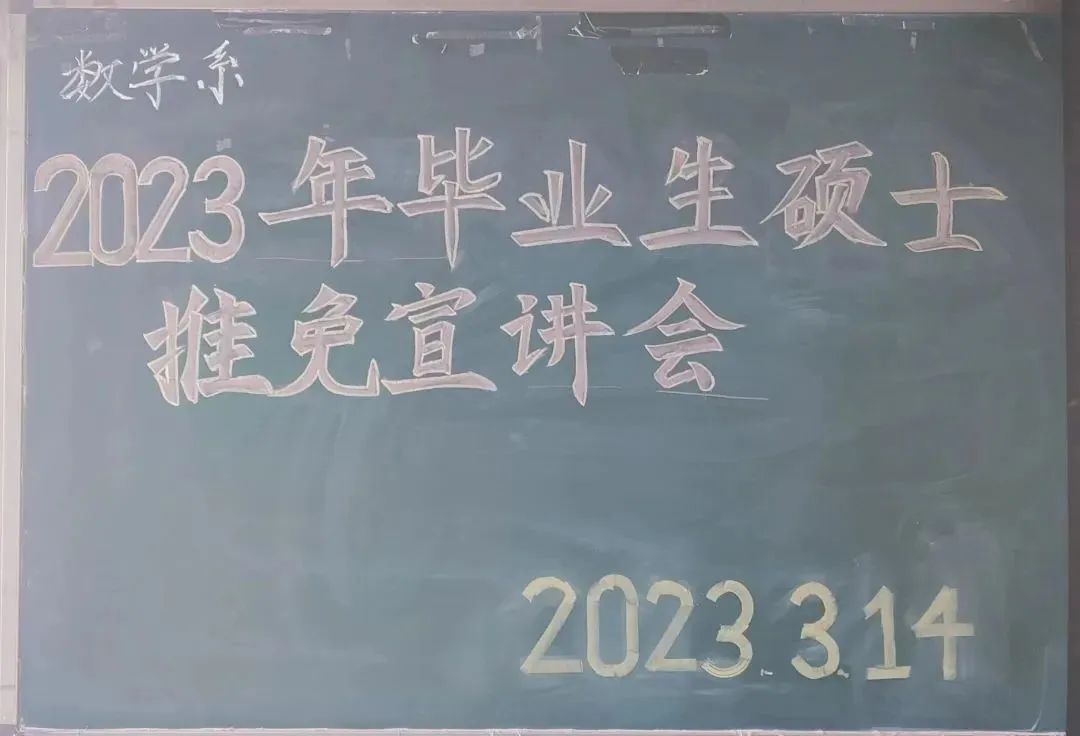 数学系
2023年毕业生硕士
推免宣讲会
2023.3.14